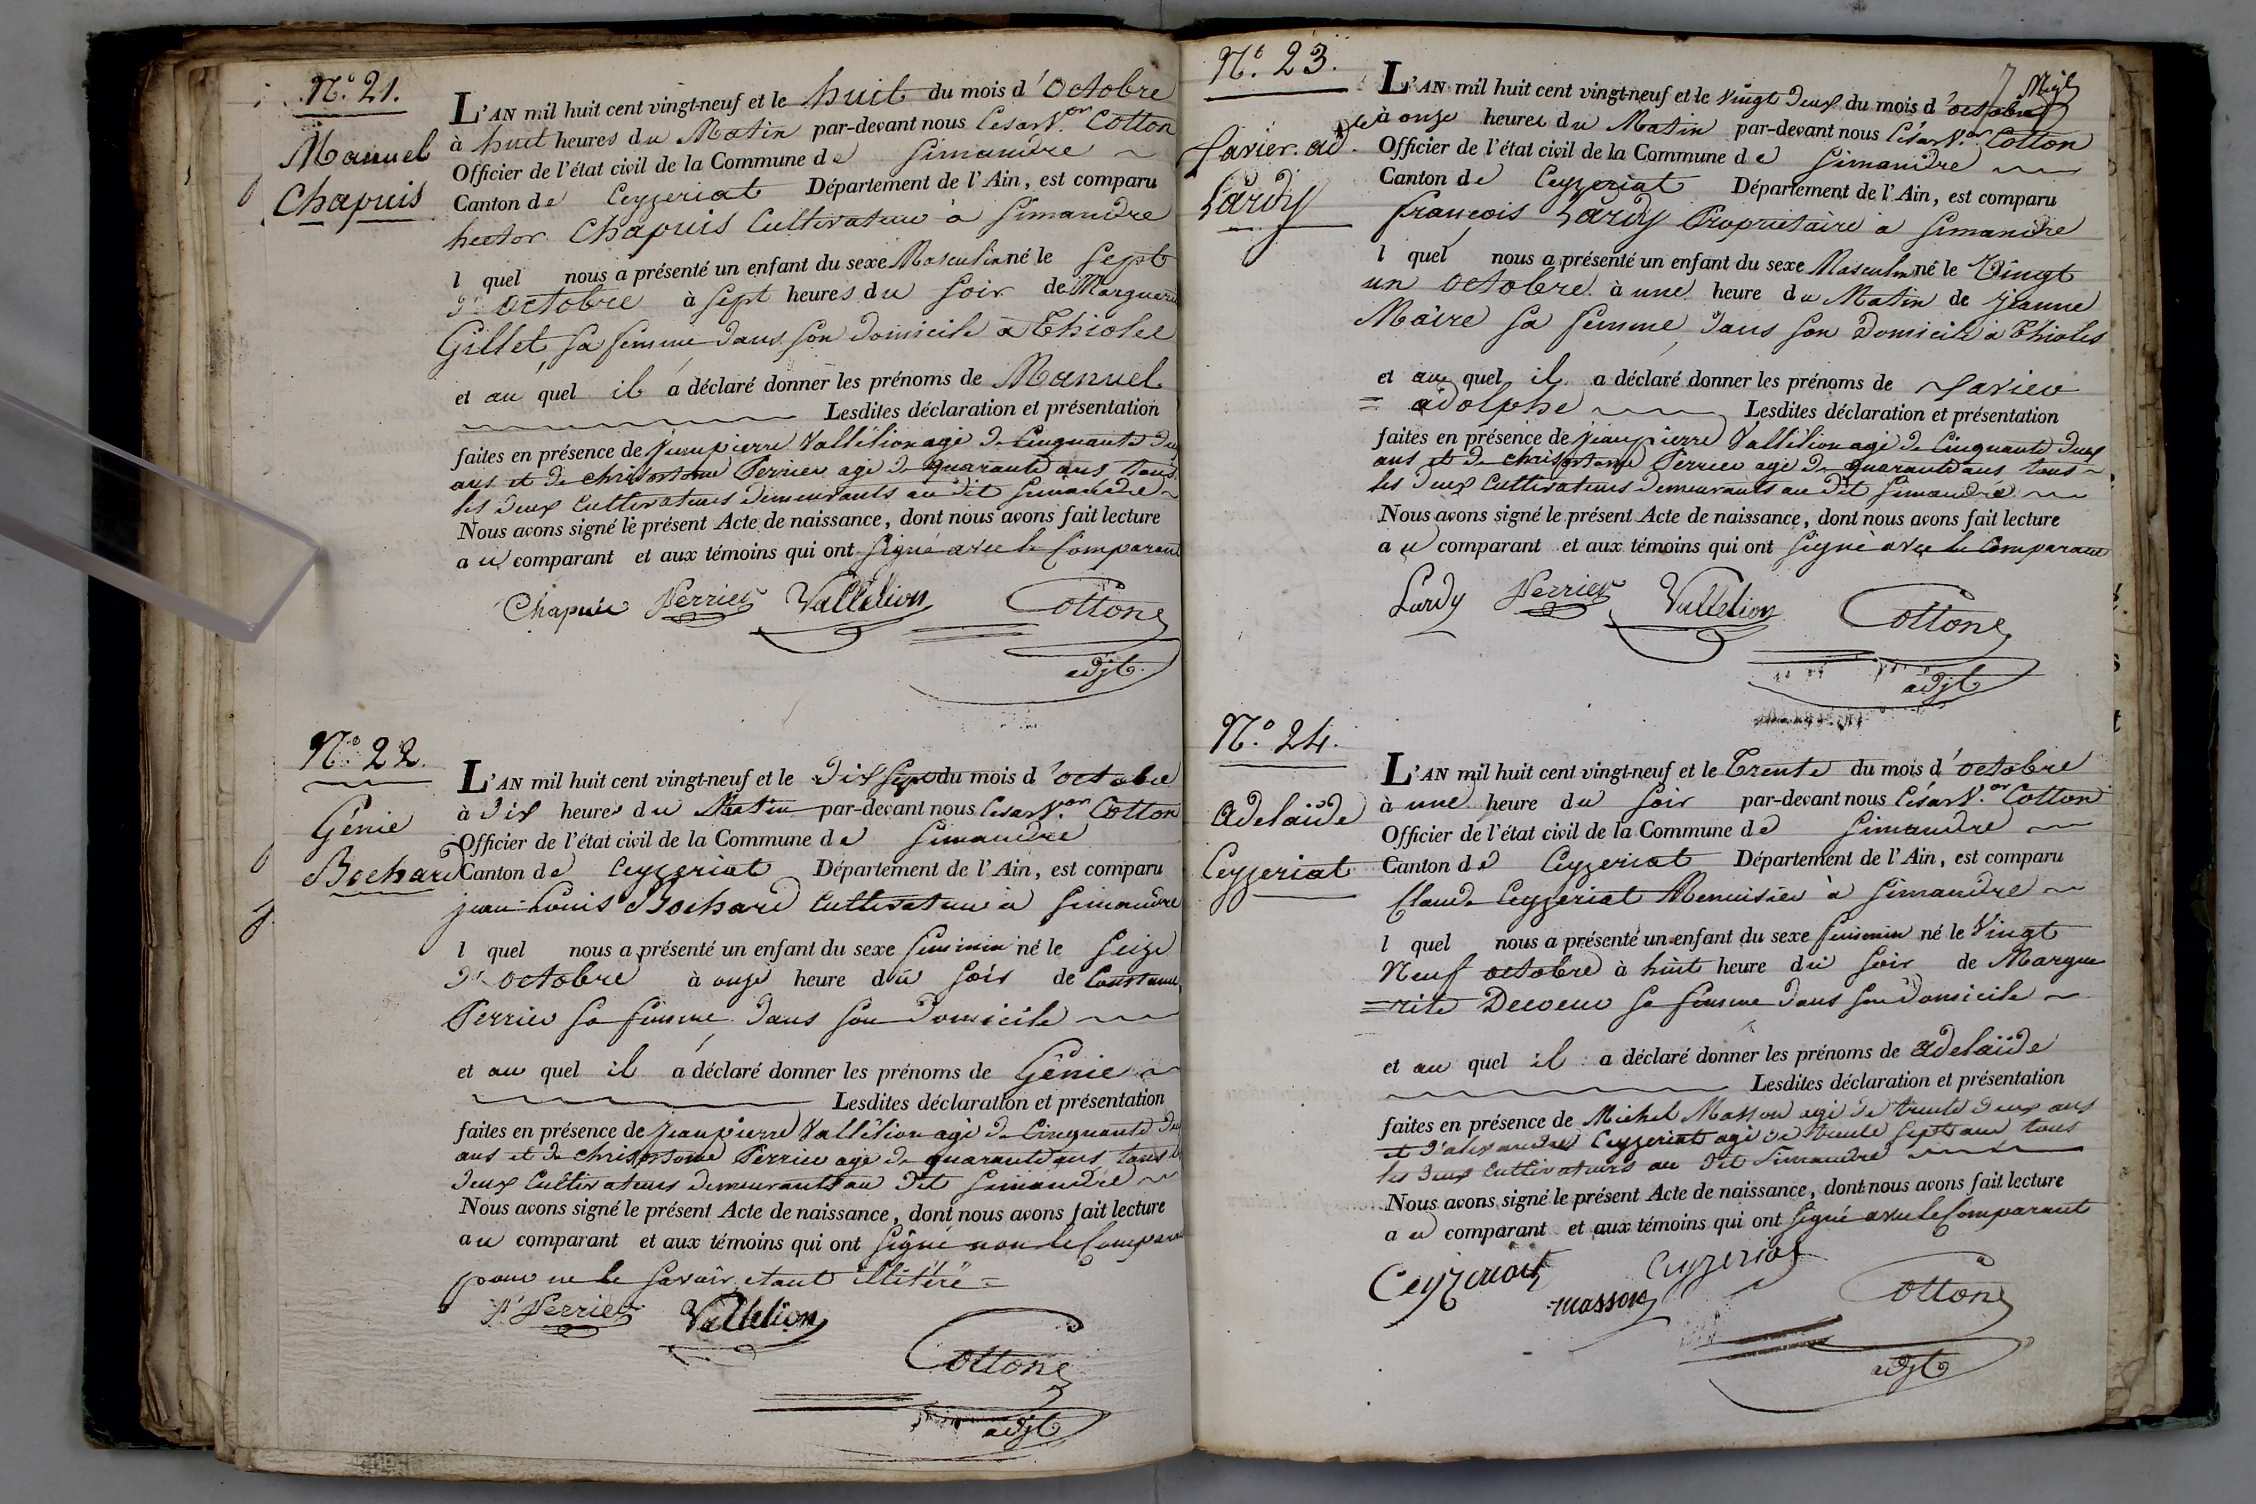 N.° 21.
Manuel
Chapuis
L'AN mil huit cent vingt-neuf et le huit du mois d'Octobre
à huit heures du Matin par-devant nous Cesar V.or Cotton
Officier de l'état civil de la Commune de Simandre
Canton de Ceyzeriat Département de l'Ain, est comparu
hector Chapuis Cultivateur à Simandre
l quel nous a présenté un enfant du sexe Masculin né le Sept
d'Octobre à Sept heures du Soir de Marguerite
Gillet, sa femme dans son domicile à Thioles
et au quel il a déclaré donner les prénoms de Manuel
Lesdites déclaration et présentation
faites en présence de Jeanpierre Vallélion agé de Cinquante deux
ans et de chrisostome Perrier agé de quarante ans tous
les deux Cultivateurs demeurants au dit Simandre
Nous avons signé le présent Acte de naissance, dont nous avons fait lecture
au comparant et aux témoins qui ont Signé avec le Comparant
Chapuis Perrier Vallélion Cotton
adjt
N.° 22.
Génie
Bochard
L'AN mil huit cent vingt-neuf et le Dix Sept du mois d'octobre
à dix heures du Matin par-devant nous Cesar V.or Cotton
Officier de l'état civil de la Commune de Simandre
Canton de Ceyzeriat Département de l'Ain, est comparu
jean-Louis Bochard Cultivateur à Simandre
l quel nous a présenté un enfant du sexe feminin né le Seize
d'octobre à onze heure du Soir de Constance
Perrier sa femme dans son Domicile
et au quel il a déclaré donner les prénoms de Génie
Lesdites déclaration et présentation
faites en présence de Jeanpierre Vallélion agé de Cinquante deux
ans et de chrisostome Perrier agé de quarante ans tous les
deux Cultivateurs demeurants au dit Simandre
Nous avons signé le présent Acte de naissance, dont nous avons fait lecture
au comparant et aux témoins qui ont Signé non le Comparant
pour ne le Savoir étant illitéré =
Perrier Vallélion
Cotton
adjt
7
N.° 23.
Xavier. ad.
Lardy
L'AN mil huit cent vingt-neuf et le Vingt Deux du mois d'octobre
à onze heures du Matin par-devant nous César V.or Cotton
Officier de l'état civil de la Commune de Simandre
Canton de Ceyzeriat Département de l'Ain, est comparu
françois Lardy Propriétaire à Simandre
l quel nous a présenté un enfant du sexe Masculin né le Vingt
un octobre à une heure du Matin de Jeanne
Maire sa femme, dans son Domicile à Thioles
et au quel il a déclaré donner les prénoms de Xavier
= adolphe Lesdites déclaration et présentation
faites en présence de Jeanpierre Vallélion agé de Cinquante deux
ans et de chrisostome Perrier agé de quarante ans tous
les deux Cultivateurs demeurants au dit Simandre
Nous avons signé le présent Acte de naissance, dont nous avons fait lecture
au comparant et aux témoins qui ont Signé avec le Comparant
Lardy Perrier Vallélion Cotton
adjt
N.° 24.
adelaïde
Ceyzeriat
L'AN mil huit cent vingt-neuf et le Trente du mois d'octobre
à une heure du Soir par-devant nous César V.or Cotton
Officier de l'état civil de la Commune de Simandre
Canton de Ceyzeriat Département de l'Ain, est comparu
Claude Ceyzeriat Menuisier à Simandre
l quel nous a présenté un enfant du sexe feminin né le Vingt
Neuf octobre à huit heure du Soir de Margue
=rite sa femme dans son Domicile
et au quel il a déclaré donner les prénoms de adelaïde
Lesdites déclaration et présentation
faites en présence de Michel Masson agé de trente deux ans
et d'alexandre Ceyzeriat agé de trente Sept ans tous
les deux Cultivateurs au dit Simandre
Nous avons signé le présent Acte de naissance, dont nous avons fait lecture
au comparant et aux témoins qui ont Signé avec le Comparant
Ceyzeriat Ceyzeriat
masson Cotton
adjt